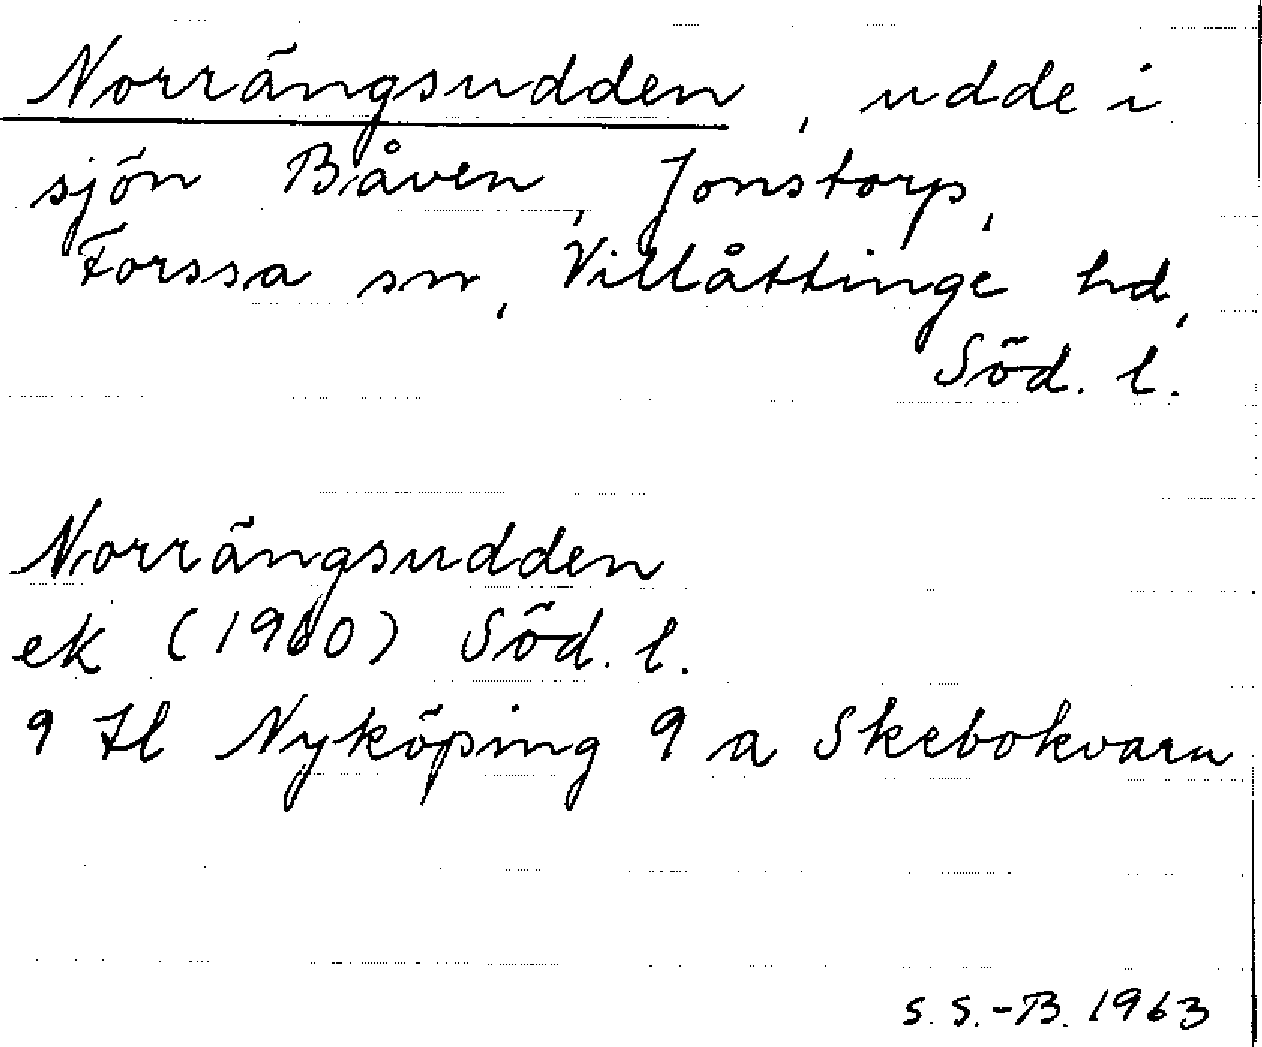 Norrängsudden, udde i
sjön Båven, Jonstorp,
Forssa sn, Villåttinge hd,
Söd. l.
Norrängsudden
ek (1960) Söd. l.
9 H l Nyköping 9 a Skebokvarn
S. S.-B. 1963